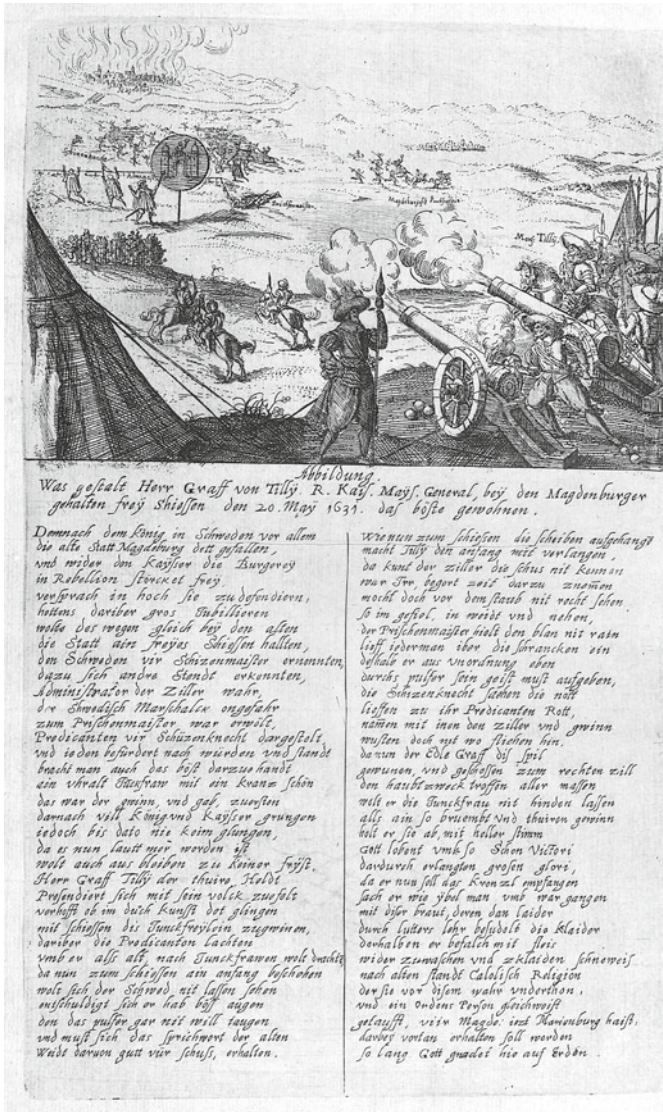 Prischenmaister
Mons Tilly
Abbildung.
Was gestalt Herr Graff von Tillÿ R. Kaiß. Maÿs. General, beÿ den Magdenburger
gehalten freÿ Shiessen den 20. Maÿ 1631. das böste gewohnen.
Demnach dem König in Schweden vor allem
die alte Statt Magdeburg dett gefallen,
vnd wider den Kaÿser die Burgereÿ
in Rebellion stürcket freÿ
versprach in hoch sie zu defendiern,
hettens dariber gros Iubillieren
wolte des wegen gleich beÿ den alten
die Statt ain freÿes Shiessen hallten,
den Schweden vir Schizenmaister ernennten,
dazu sich andre Stendt erkennten,
Administrator der Ziller wahr,
der Schwedisch Marschalck ongefahr
zum Prischenmaister war erwölt,
Predicanten vir Schüzenknecht dargestelt
vnd ieden befürdert nach würden vnd standt
bracht man auch das böst darzue handt
ain vhralt Iückfraw mit ein Kranz schön
das war der gwinn, vnd gab, zuersten
darnach vill König vnd Kaÿser grungen
iedoch bis dato nie keim glungen,
da es nun lautt mer worden ist
wolt auch aus bleiben zu keiner frÿst.
Herr Graff Tillÿ der thuire, Heldt
Presendiert sich mit sein volck zuefelt
verhifft ob im duch Kunst det glingen
mit schiessen dis Iunckfreÿlein zugwinen,
dariber die Predicanton lachten
vmb er alls alt, nach Iunckfrawen wolt drachtē
da nun zum schiessen ain anfang beschehen
wolt sich der Schwed nit lassen sehen
entschuldigt sich er hab böß augen
den das pulfer gar nit will taugen
vnd must sich das Sprichwort der alten
Weidt daruon gutt vür schuss, erhalten.
Wie nun zum schiessen die scheiben aufgehangt
macht Tillÿ den anfang mit verlangen,
da kunt der ziller die schus nit kennen
war Irr, begert zeit darzu znemen
mocht doch vor dem staub nit recht sehen
so im gefiel, in weidt vnd nehen,
der Prischenmaister hielt den blan nit rain
lieff iederman iber die schrancken ein
deshalb er aus vnordnung eben
durchs pulfer sein geist must aufgeben,
die Schizenknecht sachen die nott
lieffen zu ihr Predicanten Rott,
namen mit inen den ziller vnd gwinn
wusten doch nit wo fliehen hin.
da nun der Edle Graff dis spil
gewunen, vnd geschossen zum rechten zill
den haubtzweck troffen aller massen
wolt er die Iunckfrau nit hinden lassen
alls ain so bruembt vnd thuiren gewinn
holt er sie ab, mit heller stimm
Gott lobent vmb so Schon Victori
dardurch erlangten grosen glori,
da er nun soll das Krenzl empfangen
sach er wie ÿbel man vmb war gangen
mit diser braut, deren dan laider
durch lutters lehr besudelt die klaider
derhalben er befalch mit fleis
wider zuwaschen vnd zklaiden schneweis
nach alten standt Catolisch Religion
der sie vor disem wahr vnderthon,
vnd ein Ordens Person gleichweist
getaufft, viir Magde: iezt Marienburg haist,
darbeÿ vortan erhalten soll werden
so lang Gott gnadet hie auf Erden.